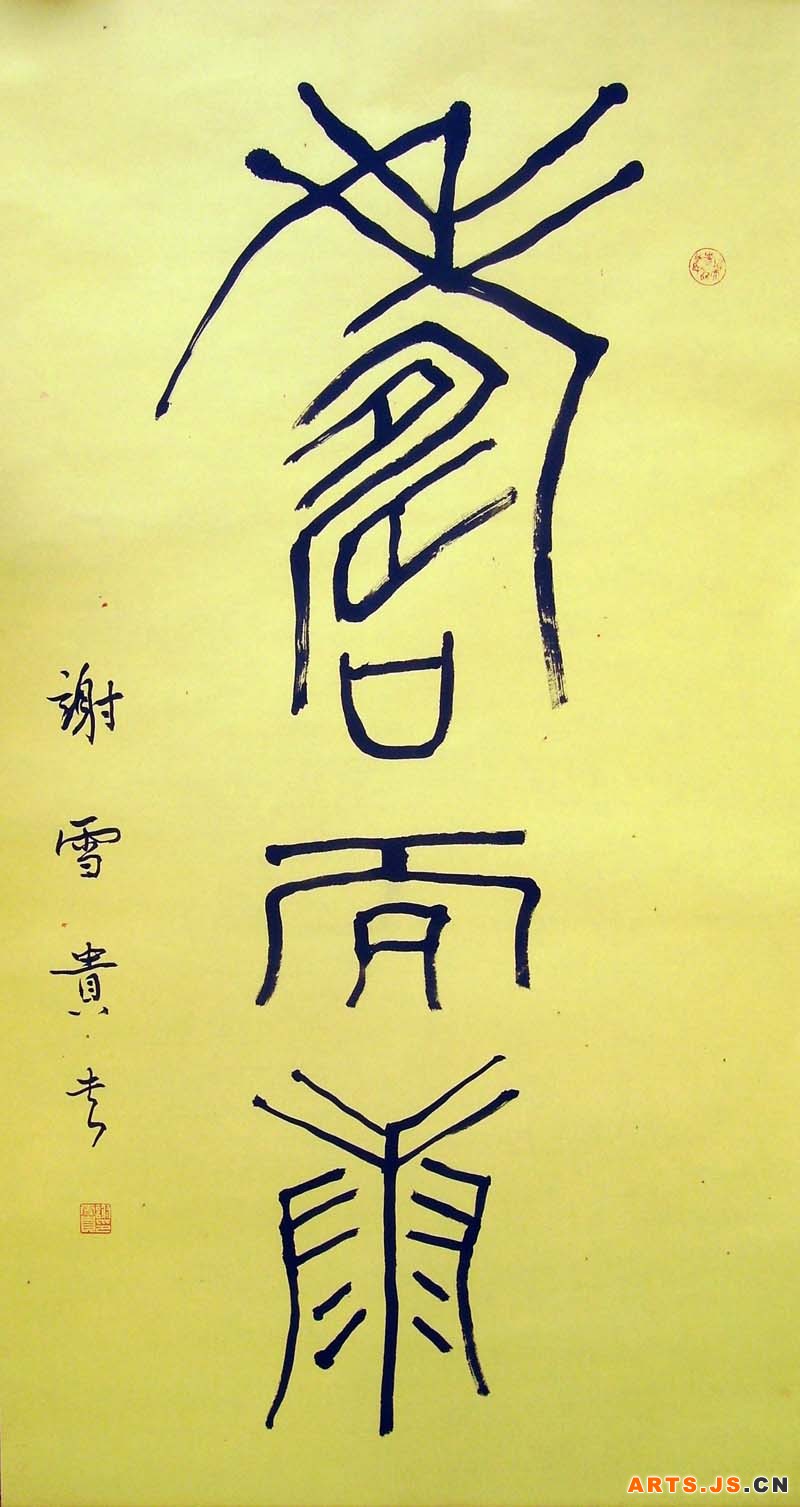 壽而康
謝雪貴書
ARTS.JS.CN